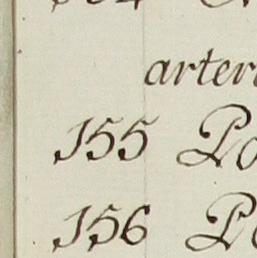 arter
155 Po
156 Po